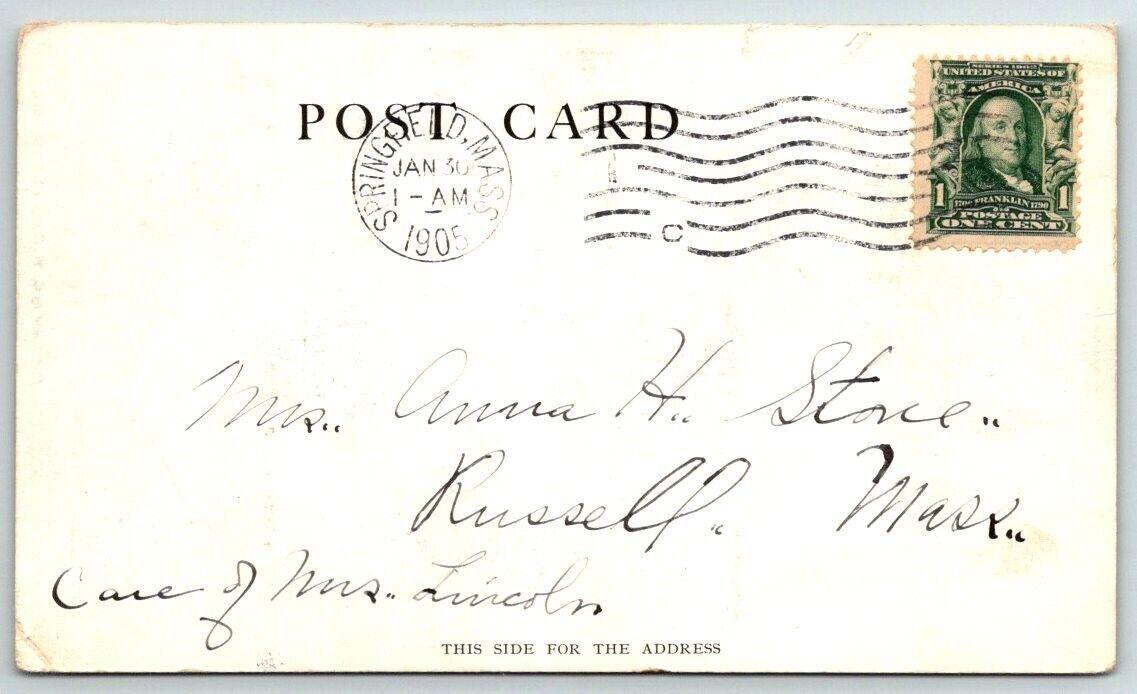 POST CARD
SPRINGFIELD, MASS
JAN 30
1 - AM
1905
C
SERIES 1902
UNITED STATES OF
AMERICA
1 1
1706 FRANKLIN 1790
POSTAGE
ONE CENT
Mrs. Anna H. Stone.
Russell. Mass.
Care of Mrs. Lincoln
THIS SIDE FOR THE ADDRESS